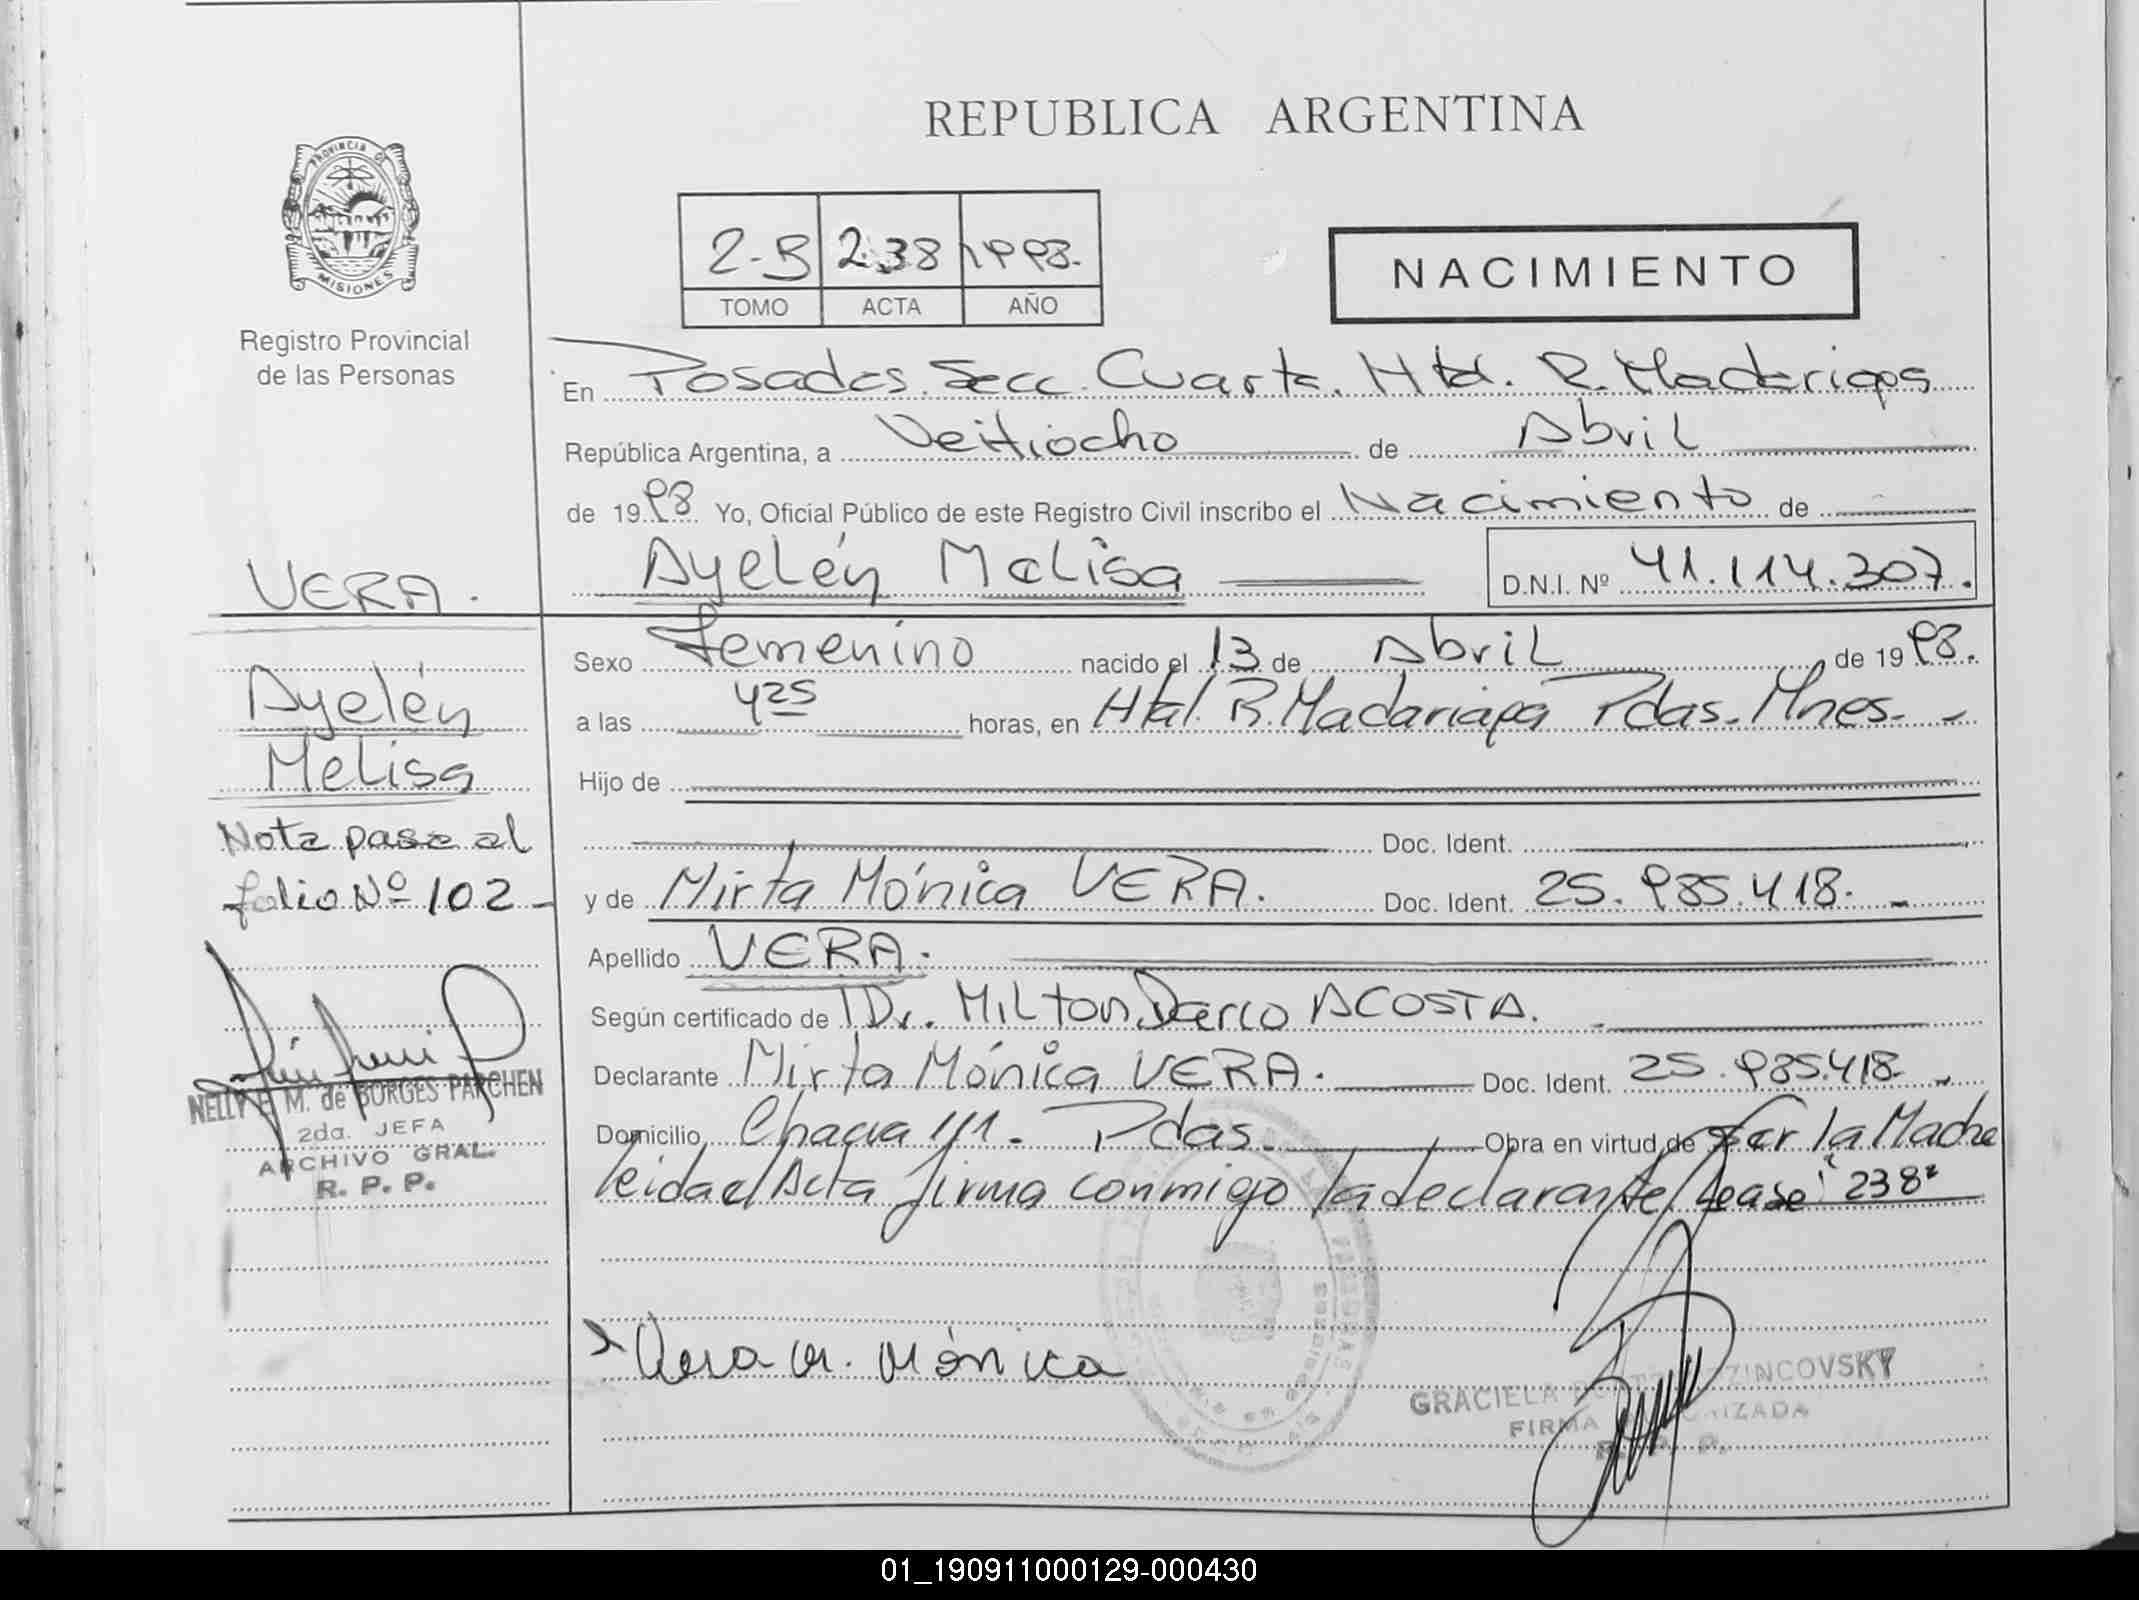 REPUBLICA ARGENTINA
PROVINCIA DE
MISIONES
Registro Provincial
de las Personas
2-B 238 1998.
TOMO ACTA AÑO
NACIMIENTO
En Posadas. Secc. Cuarta. Htal. R. Madariaga
República Argentina, a Veitiocho de Abril
de 1998 Yo, Oficial Público de este Registro Civil inscribo el Nacimiento de
Ayelén Melisa D.N.I. Nº 41.114.307.
VERA.
Ayelén
Melisa
Nota pasa al
folio Nº 102-
NELLY E. M. de BORGES PARCHEN
2da. JEFA
ARCHIVO GRAL.
R. P. P.
Sexo Femenino nacido el 13 de Abril de 1998.
a las 4 25 horas, en Htal. R. Madariaga Pdas. Mnes. -
Hijo de
Doc. Ident.
y de Mirta Mónica VERA. Doc. Ident. 25.985.418. -
Apellido VERA.
Según certificado de Dr. Milton Darío ACOSTA.
Declarante Mirta Mónica VERA. Doc. Ident. 25.985.418. -
Domicilio Chacra 111. Pdas. Obra en virtud de Ser la Madre
leida el Acta firma conmigo la declarante/ Lease "238"
Vera M. Mónica
GRACIELA ZINCOVSKY
FIRMA AUTORIZADA
R. P. P.
01_190911000129-000430